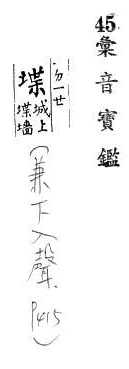 45彙音寶鑑
ㄉㄧㄝ
堞
城上
堞墻
(兼下入聲. P415)